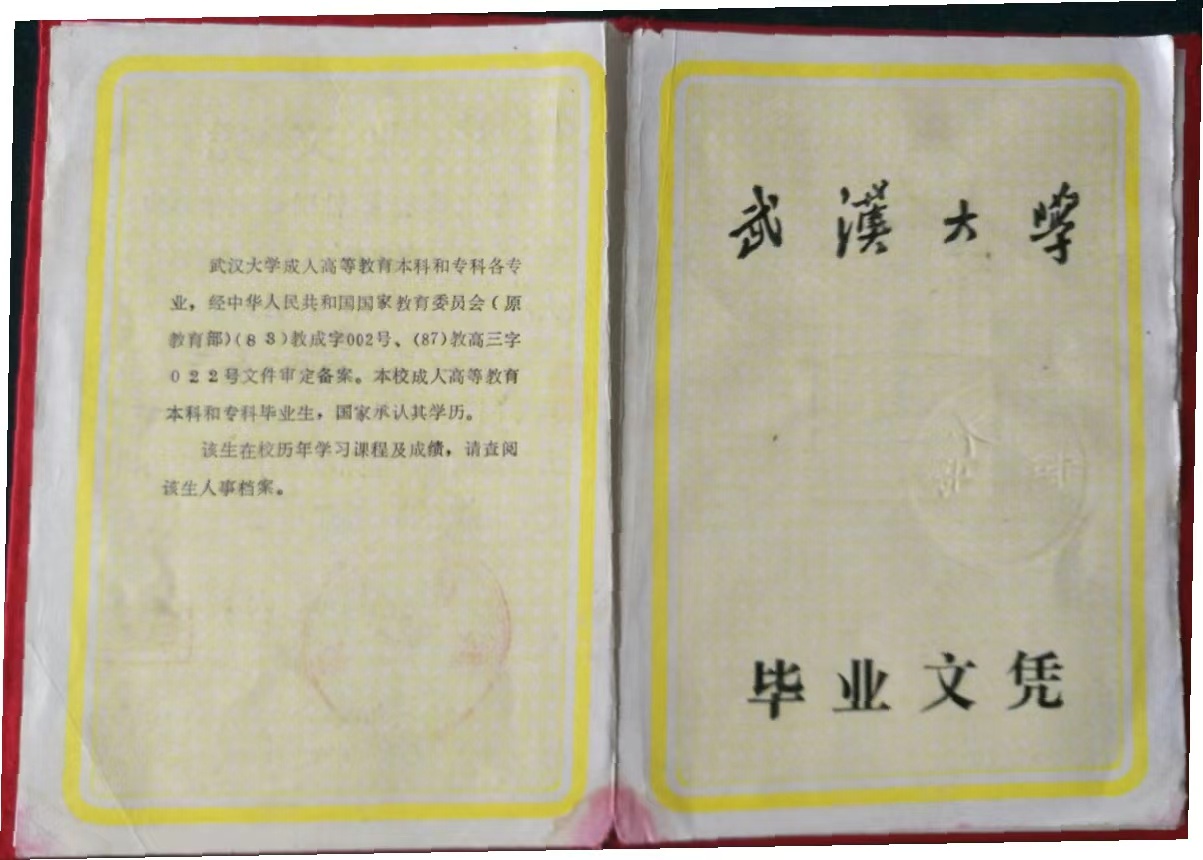 武汉大学成人高等教育本科和专科各专
业，经中华人民共和国国家教育委员会(原
教育部)(83)教成字002号、(87)教高三字
022号文件审定备案。本校成人高等教育
本科和专科毕业生，国家承认其学历。
该生在校历年学习课程及成绩，请查阅
该生人事档案。
武漢大學
毕业文凭